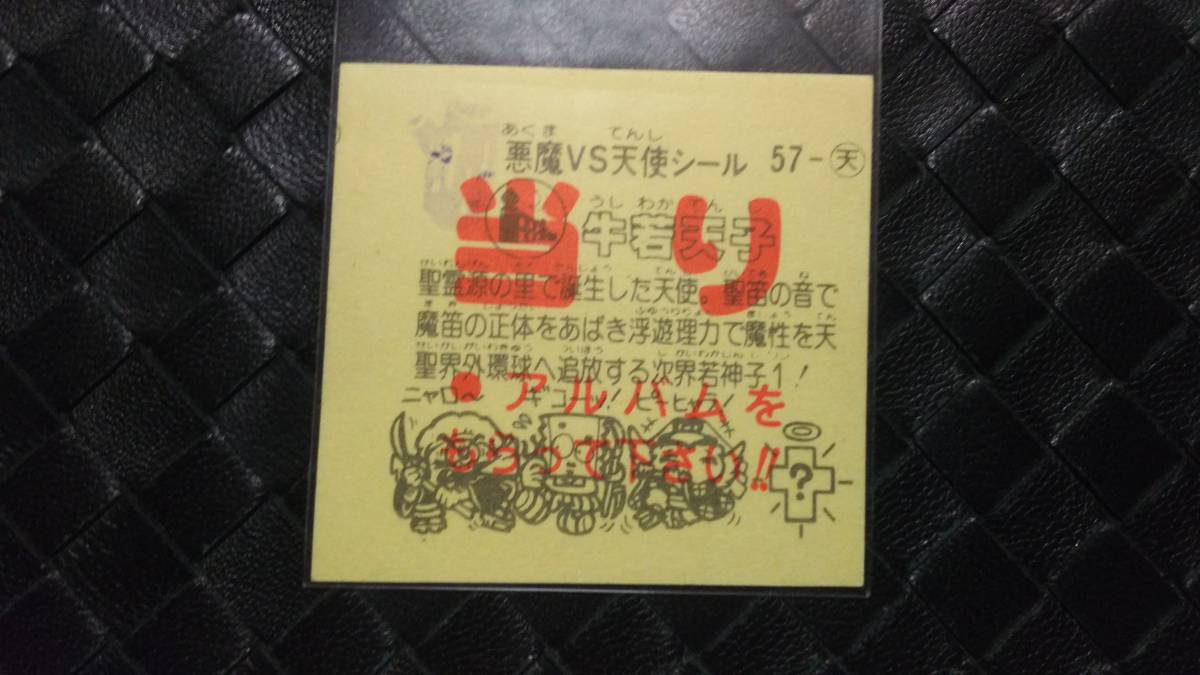 あくま てんし
悪魔VS天使シール 57-天
当り
うし わか てん し
牛若天子
聖霊源の里で誕生した天使。聖笛の音で
魔笛の正体をあばき浮遊理力で魔性を天
聖界外環球へ追放する次界若神子1!
●アルバムを
もらって下さい!!
ニャロ〜 ギコーッ! ピーヒャラ!
?